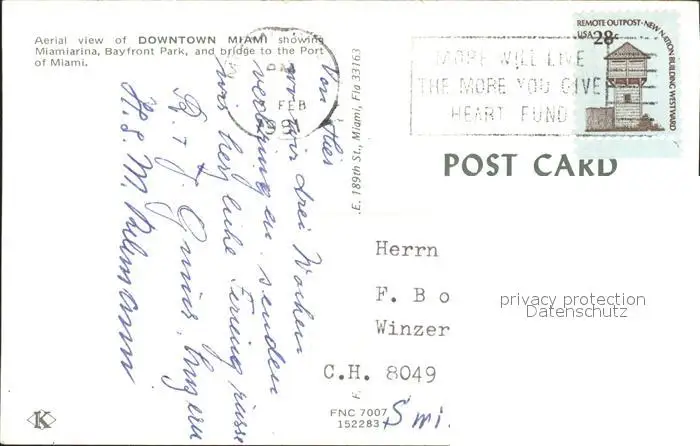 Aerial view of DOWNTOWN MIAMI showing
Miamiarina, Bayfront Park, and bridge to the Port
of Miami.
REMOTE OUTPOST · NEW NATION BUILDING WESTWARD
USA 28c
MORE WILL LIVE
THE MORE YOU GIVE
HEART FUND
FEB
POST CARD
.E. 189th St., Miami, Fla 33163
Von hier
wo wir drei Wochen
verbringen senden
wir herzliche Feriengrüsse
Luzern
H. & M.
Herrn
F. Bo
Winzer
C.H. 8049
privacy protection
Datenschutz
K
FNC 7007
152283